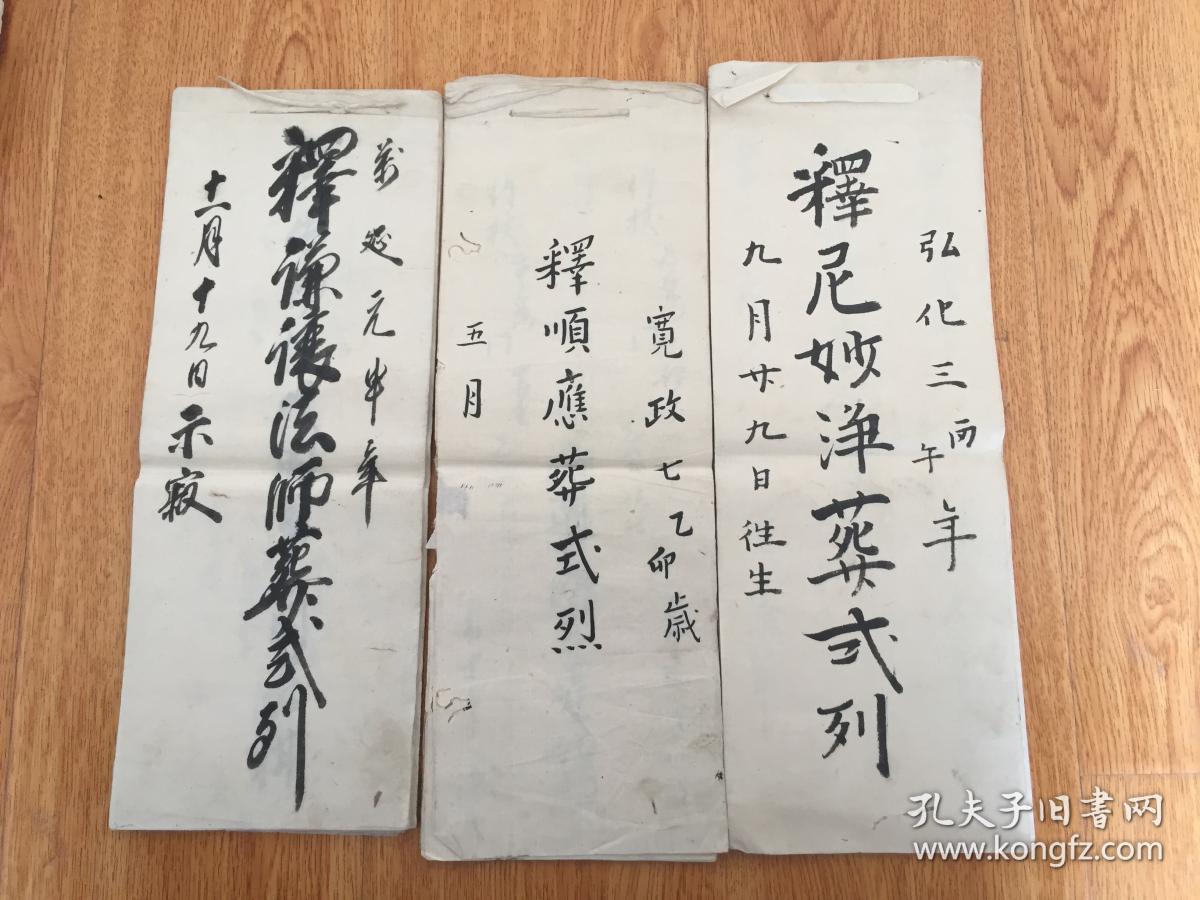 弘化三丙午年
釋尼妙淨葬式列
九月廿九日往生
寛政七乙卯歳
釋順應葬式烈
五月
萬延元申年
釋謙讓法師葬式列
十一月十九日示寂
孔夫子旧書网
www.kongfz.com